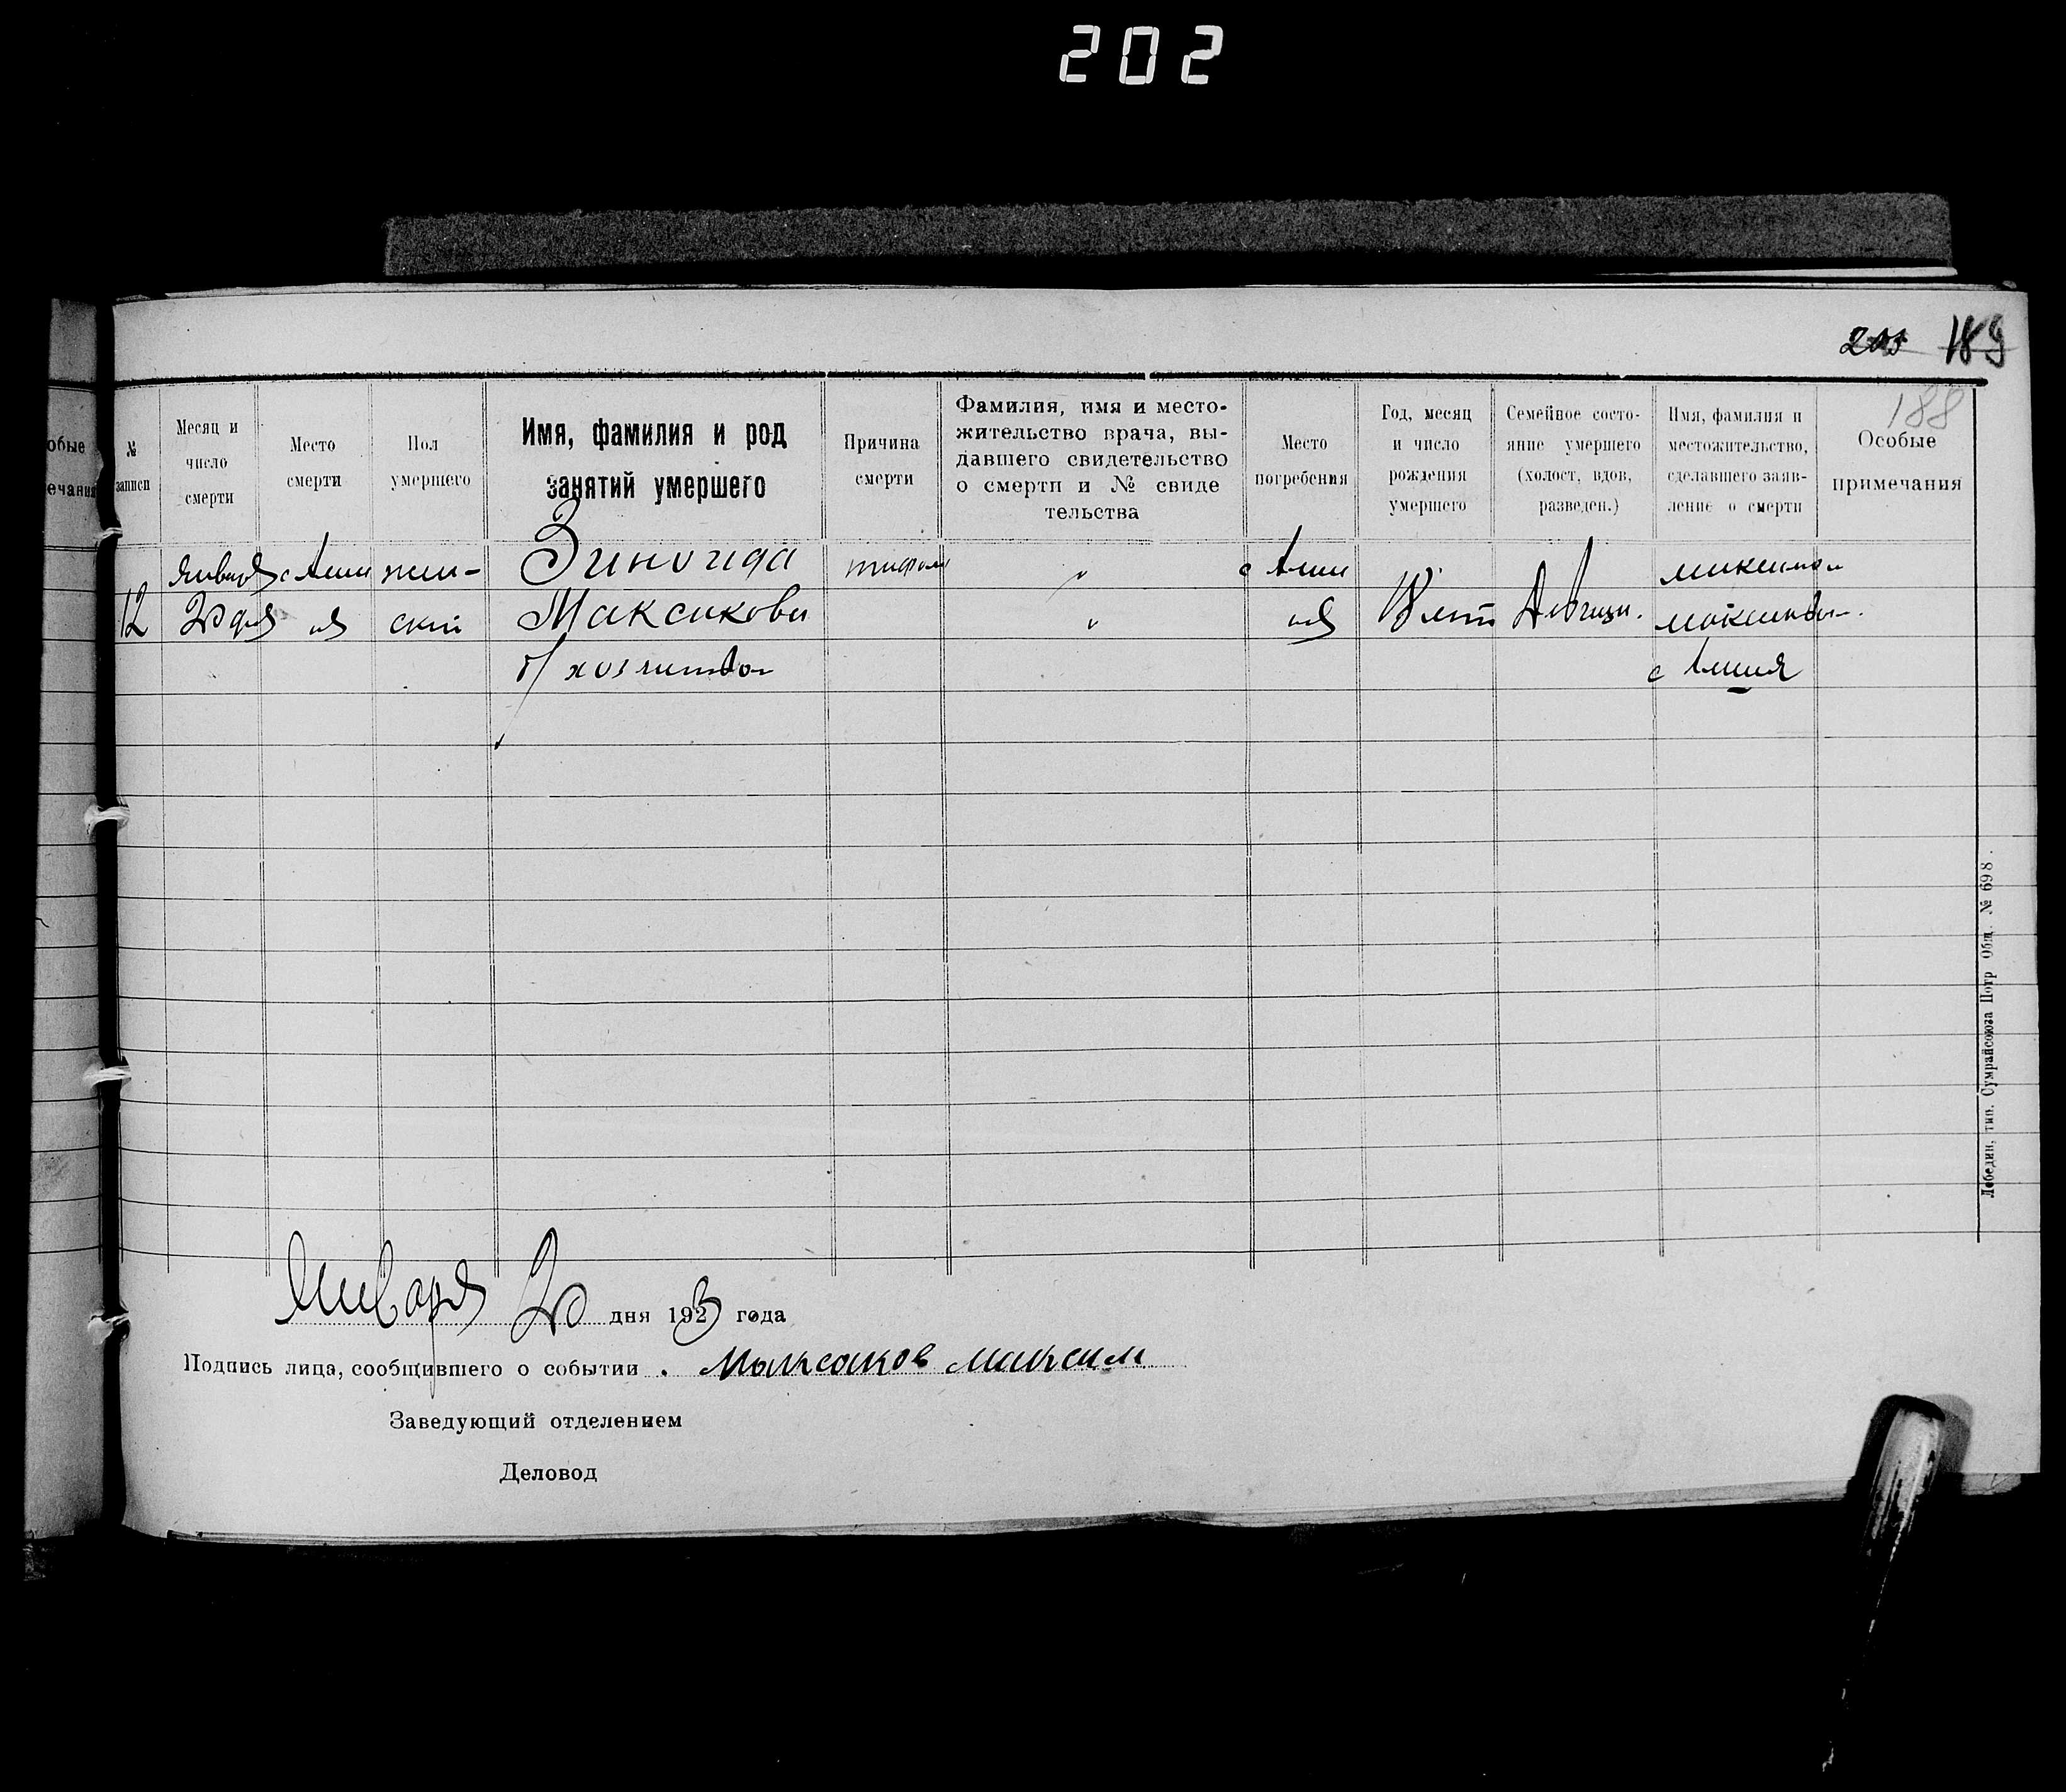 202
189
188
обые
ечания
№
записи
Месяц и
число
смерти
Место
смерти
Пол
умершего
Имя, фамилия и род
занятий умершего
Причина
смерти
Фамилия, имя и место-
жительство врача, вы-
давшего свидетельство
о смерти и № свиде
тельства
Место
погребения
Год, месяц
и число
рождения
умершего
Семейное состо-
яние умершего
(холост, вдов,
разведен.)
Имя, фамилия и
местожительство,
сделавшего заяв-
ление о смерти
Особые
примечания
января с жен- тифом " с
12 20 дня ский Максакова " лет Девица
с
Января 20 дня 1923 года
Подпись лица, сообщившего о событии . Максаков Максим
Заведующий отделением
Деловод
Лебедин, тип. Сумрайсоюза Потр Общ. № 698.